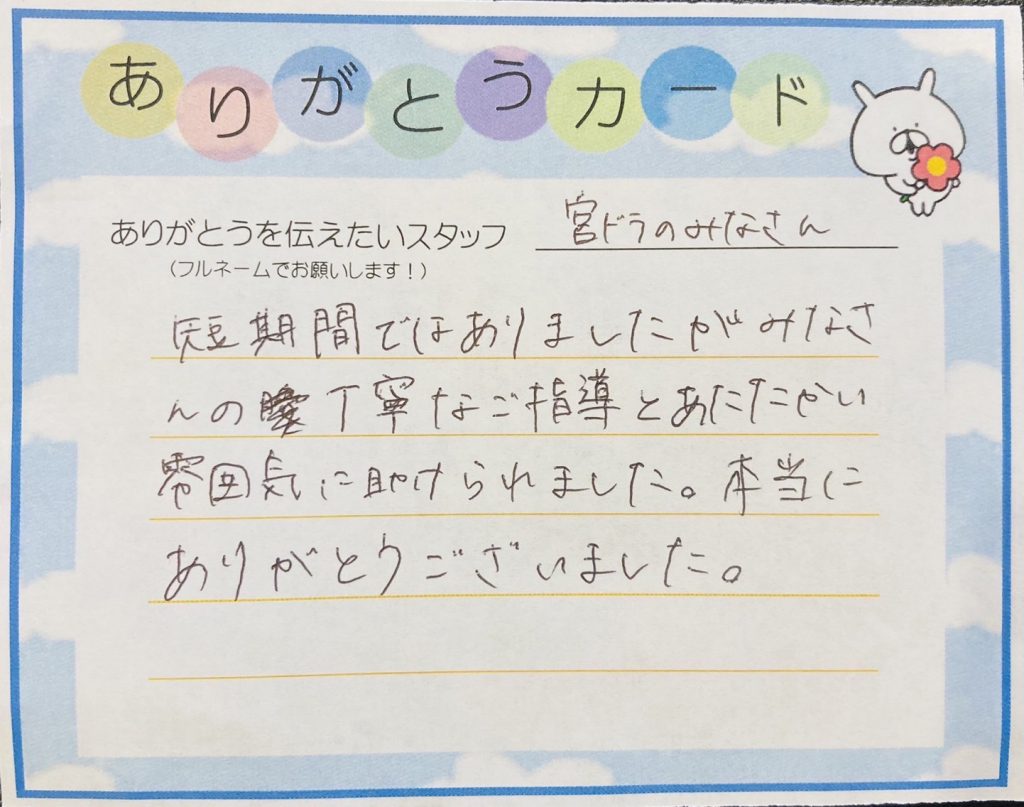 ありがとうカード
ありがとうを伝えたいスタッフ 宮ドラのみなさん
(フルネームでお願いします!)
短期間ではありましたがみなさ
んの丁寧なご指導とあたたかい
雰囲気に助けられました。本当に
ありがとうございました。